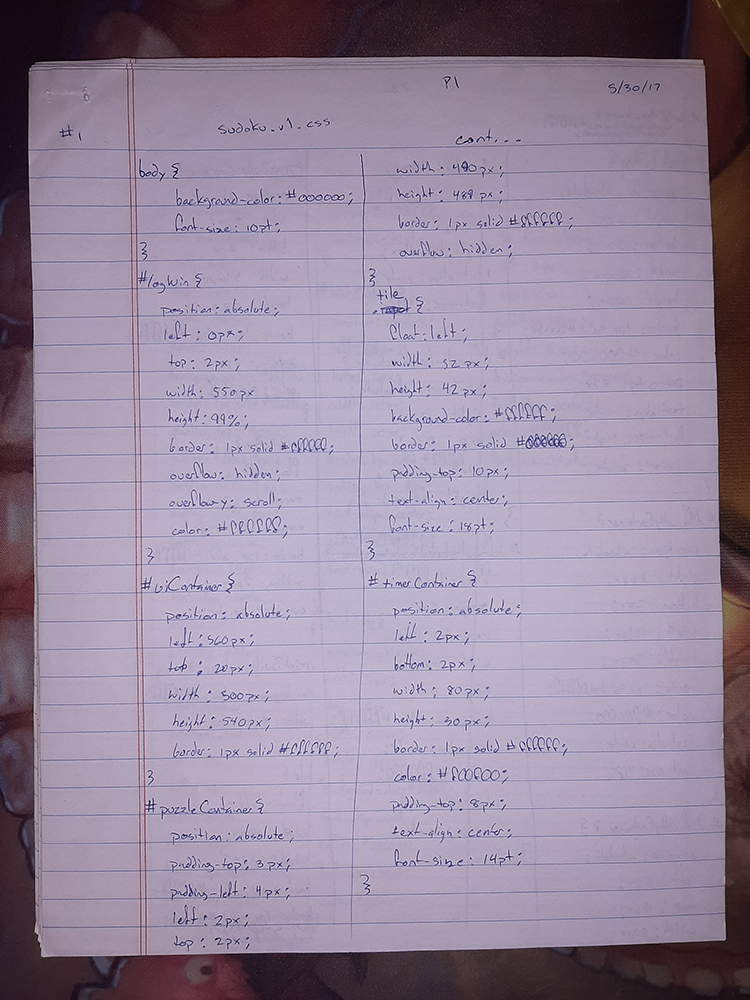 P1
5/30/17
#1
sudoku.v1.css
body {
background-color: #000000;
font-size: 10pt;
}
#logWin {
position: absolute;
left: 0px;
top: 2px;
width: 550px
height: 99%;
border: 1px solid #ffffff;
overflow: hidden;
overflow-y: scroll;
color: #ffffff;
}
#uiContainer {
position: absolute;
left: 560px;
top: 20px;
width: 500px;
height: 540px;
border: 1px solid #ffffff;
}
#puzzleContainer {
position: absolute;
padding-top: 3px;
padding-left: 4px;
left: 2px;
top: 2px;
cont...
width: 490px;
height: 489px;
border: 1px solid #ffffff;
overflow: hidden;
}
.tile {
float: left;
width: 52px;
height: 42px;
background-color: #ffffff;
border: 1px solid #000000;
padding-top: 10px;
text-align: center;
font-size: 18pt;
}
#timerContainer {
position: absolute;
left: 2px;
bottom: 2px;
width: 80px;
height: 30px;
border: 1px solid #ffffff;
color: #f00f00;
padding-top: 8px;
text-align: center;
font-size: 14pt;
}